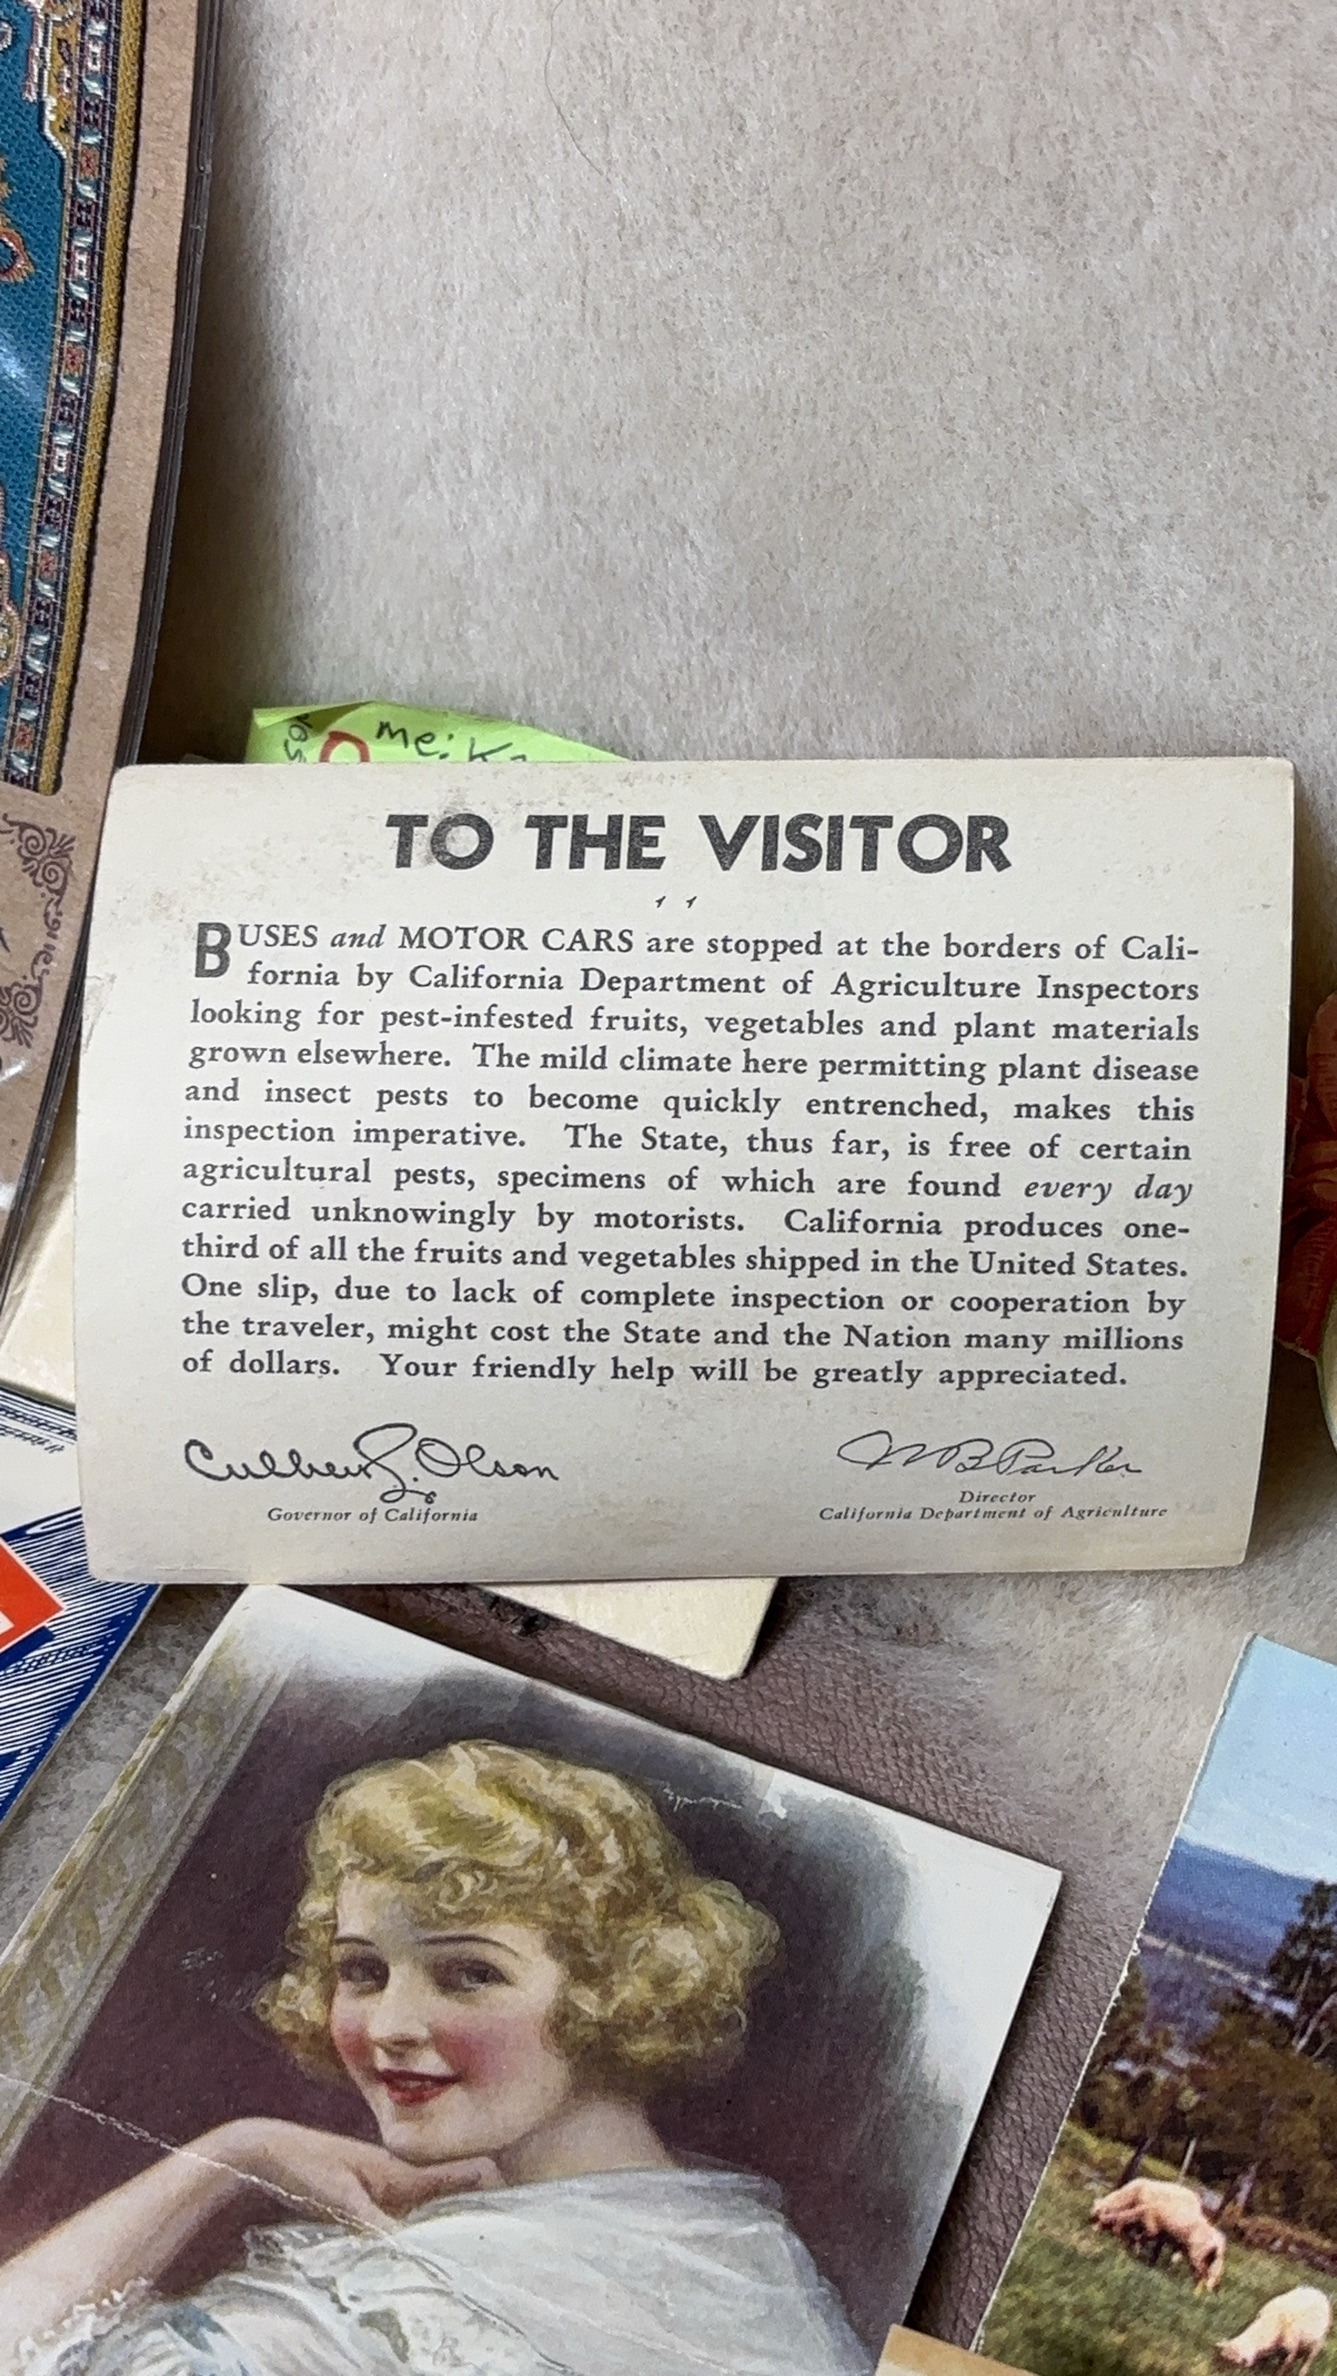 me:
TO THE VISITOR
BUSES and MOTOR CARS are stopped at the borders of Cali-
fornia by California Department of Agriculture Inspectors
looking for pest-infested fruits, vegetables and plant materials
grown elsewhere. The mild climate here permitting plant disease
and insect pests to become quickly entrenched, makes this
inspection imperative. The State, thus far, is free of certain
agricultural pests, specimens of which are found every day
carried unknowingly by motorists. California produces one-
third of all the fruits and vegetables shipped in the United States.
One slip, due to lack of complete inspection or cooperation by
the traveler, might cost the State and the Nation many millions
of dollars. Your friendly help will be greatly appreciated.
Culbert L. Olson
Governor of California
W B Parker
Director
California Department of Agriculture